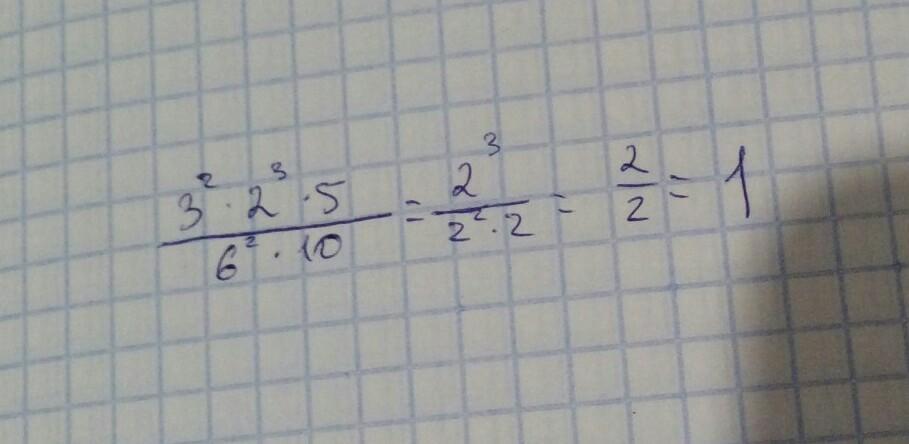 3² · 2³ · 5 / 6² · 10 = 2³ / 2² · 2 = 2 / 2 = 1